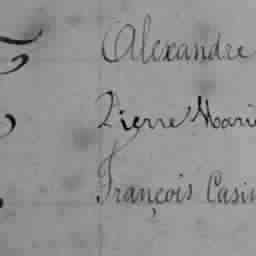 Alexandre
Pierre Marie
François Casim